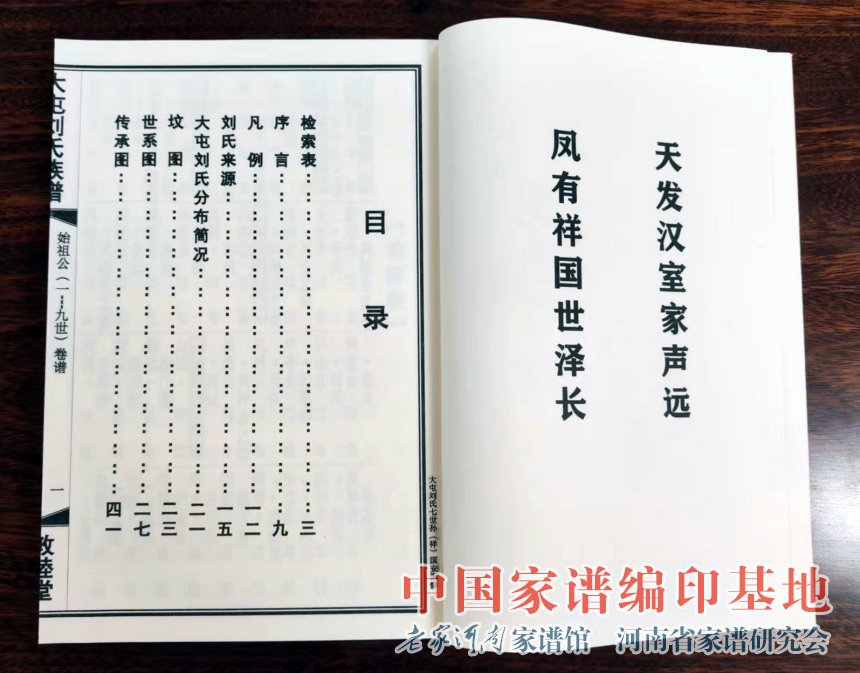 天发汉室家声远
凤有祥国世泽长
目录
检索表……三
序言……九
凡例……一二
刘氏来源……一五
大屯刘氏分布简况……二一
坟图……二三
世系图……二七
传承图……四一
大屯刘氏族谱
始祖公（一---九世）卷谱
一
敦睦堂
大屯刘氏七世孙（祥）国安
中国家谱编印基地
老家河南家谱馆 河南省家谱研究会